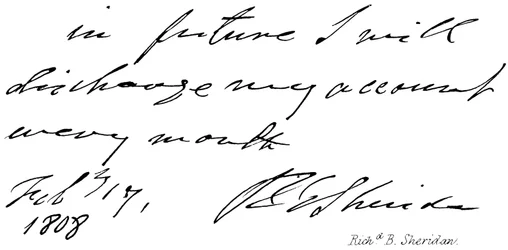 in future I will
discharge my account
every month
Feby 17,
1808
R B Sheridan
Richd. B. Sheridan.